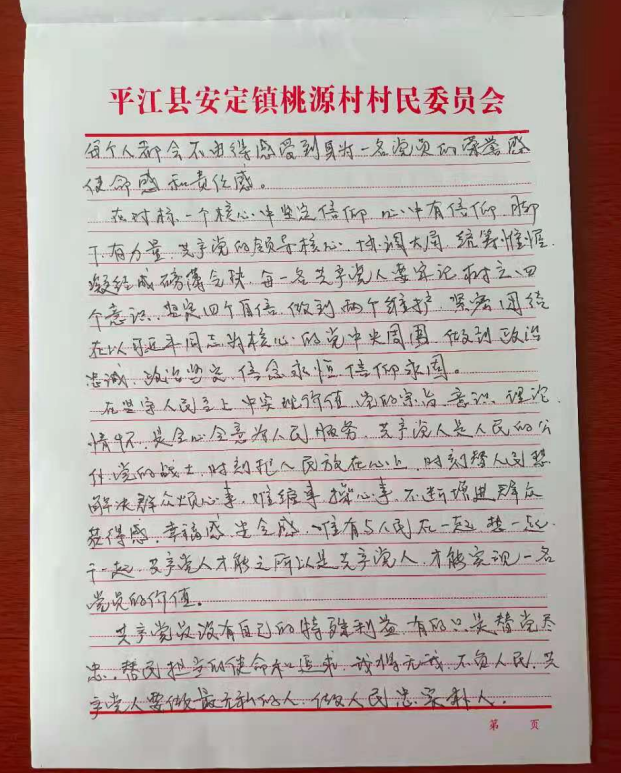 平江县安定镇桃源村村民委员会
每个人都会不由得感受到身为一名党员的荣誉感
使命感和责任感。
在对标一个核心中坚定信仰 心中有信仰 脚
下有力量 共产党的领导核心、协调大局 统筹帷幄
凝结成磅礴合 每一名共产党人要牢记树立四
个意识、坚定四个自信 做到两个维护 紧密团绕
在以习近平同志为核心的党中央周围 做到政治
忠诚 政治坚定 信念永恒 信仰永固。
在坚守人民至上中实现价值 党的宗旨 意识 理论
情怀 是全心全意为人民服务 共产党人是人民的公
仆 党的战士 时刻把人民放在心上 时刻替人民想
解决群众烦心事 难缠事 操心事 不断增进群众
获得感 幸福感 安全感 唯有与人民在一起 想一起
干一起 共产党人才能之所以是共产党人 才能实现一名
党员的价值。
共产党员没有自己的特殊利益 有的只是替党尽
忠 替民担当的使命和追求 我将无我 不负人民 共
产党人要做最无私的人 做人民忠实仆人.
第 页